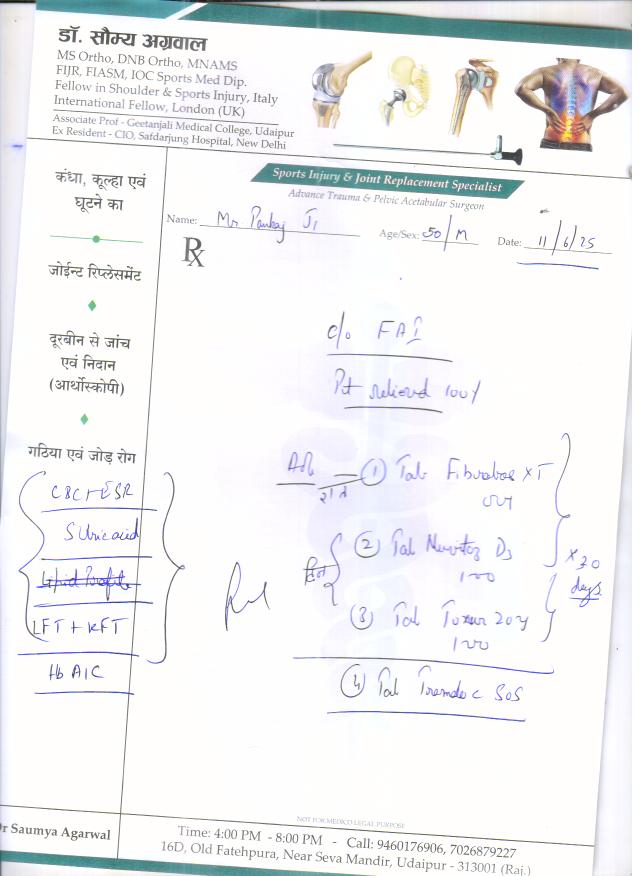 डॉ. सौम्य अग्रवाल
MS Ortho, DNB Ortho, MNAMS
FIJR, FIASM, IOC Sports Med Dip.
Fellow in Shoulder & Sports Injury, Italy
International Fellow, London (UK)
Associate Prof - Geetanjali Medical College, Udaipur
Ex Resident - CIO, Safdarjung Hospital, New Delhi
Sports Injury & Joint Replacement Specialist
Advance Trauma & Pelvic Acetabular Surgeon
Name: Mr Pankaj Ji Age/Sex: 50/M Date: 11/6/25
Rx
कंधा, कूल्हा एवं
घूटने का
जोईन्ट रिप्लेसमेंट
दूरबीन से जांच
एवं निदान
(आर्थोस्कोपी)
गठिया एवं जोड़ रोग
CBC + ESR
S Uric acid
Lipid Profile
LFT + KFT
Hb A1C
c/o FAI
Pt relieved 100%
Adv
① Tab XT
② Tab D3
③ Tab
④ Tab SOS
x 30
days
NOT FOR MEDICO LEGAL PURPOSE
Dr Saumya Agarwal
Time: 4:00 PM - 8:00 PM - Call: 9460176906, 7026879227
16D, Old Fatehpura, Near Seva Mandir, Udaipur - 313001 (Raj.)